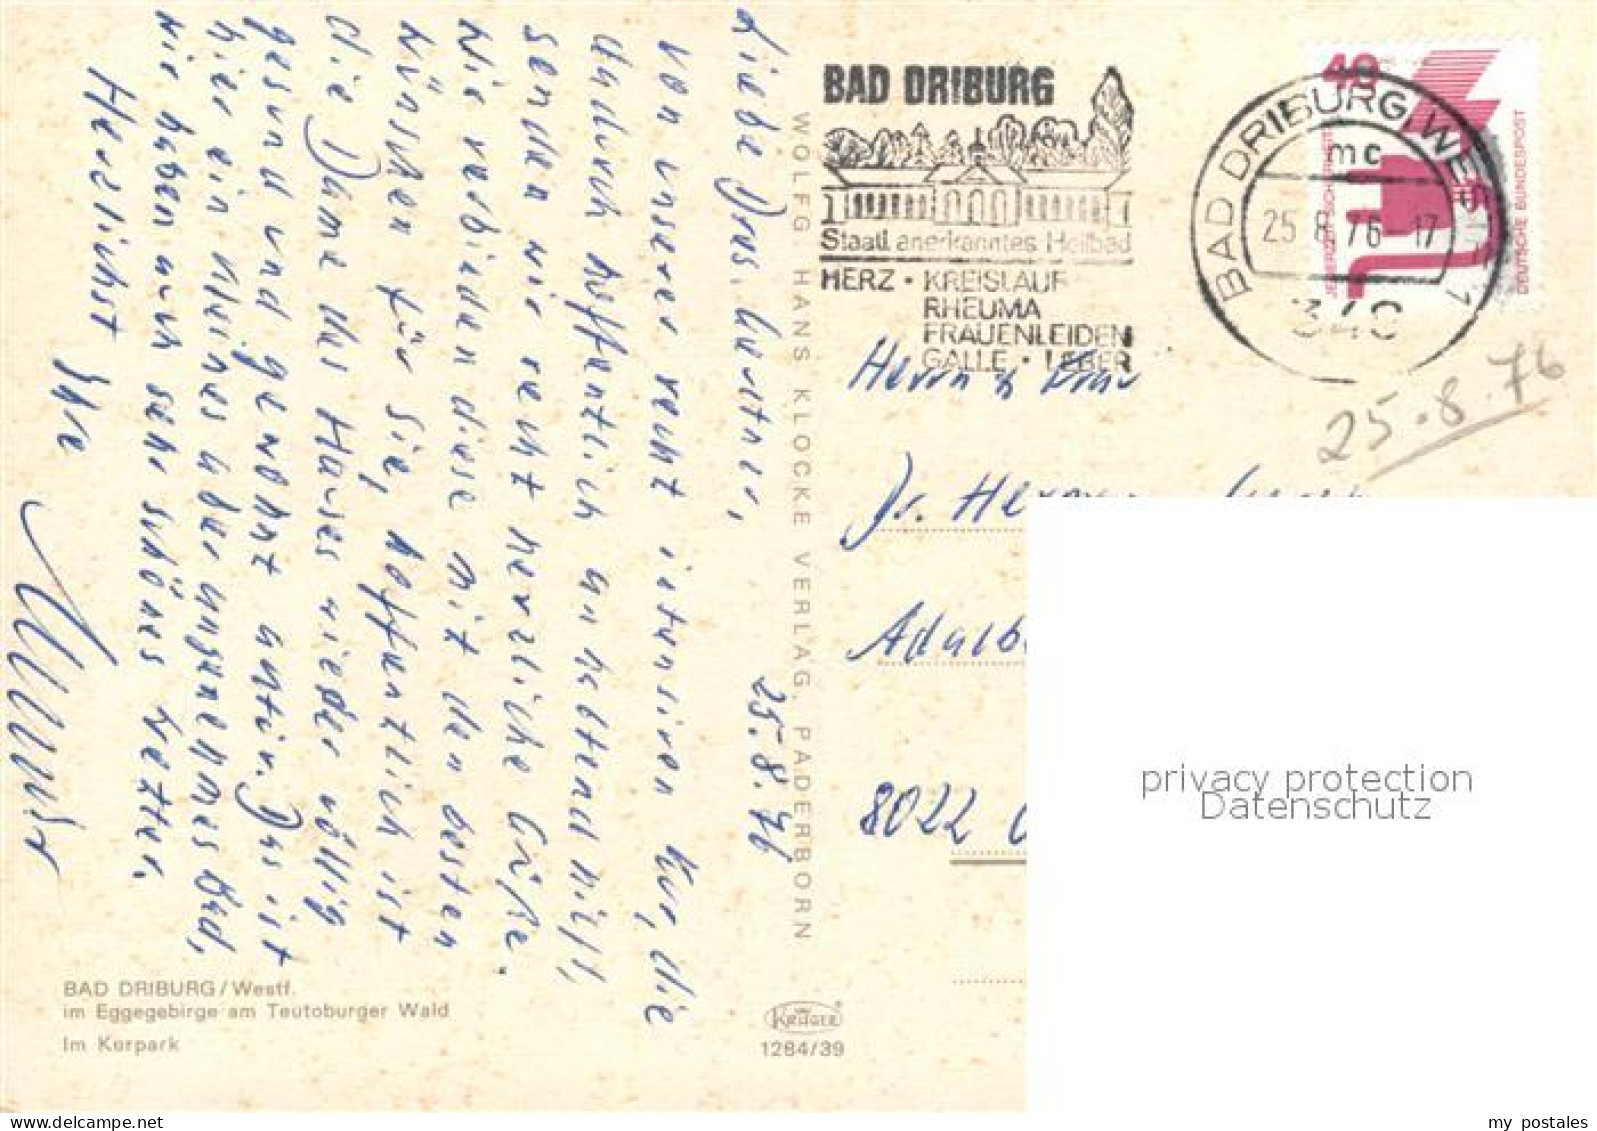 Liebe Drs. Gerstner,
25.8.76
von unserer recht intensiven Kur, die
uns auch hoffentlich anhaltend hilft,
senden wir recht herzliche Grüße.
Wir verbinden diese mit den besten
Wünschen für Sie, hoffentlich ist
die Dame des Hauses wieder völlig
gesund und gewohnt aktiv. Das ist
hier ein kleines aber angenehmes Bad,
wir haben auch sehr schönes Wetter.
Herzlichst Ihre
BAD DRIBURG/Westf.
im Eggegebirge am Teutoburger Wald
Im Kurpark
WOLFG. HANS KLOCKE VERLAG, PADERBORN
KRÜGER
1284/39
BAD DRIBURG
Staatl. anerkanntes Heilbad
HERZ • KREISLAUF
RHEUMA
FRAUENLEIDEN
GALLE • LEBER
BAD DRIBURG, WESTF 1
mc
25.8.76-17
40
JEDERZEIT SICHERHEIT
DEUTSCHE BUNDESPOST
25.8.76
Herrn & Frau
Adalb
8022
privacy protection
Datenschutz
my postales